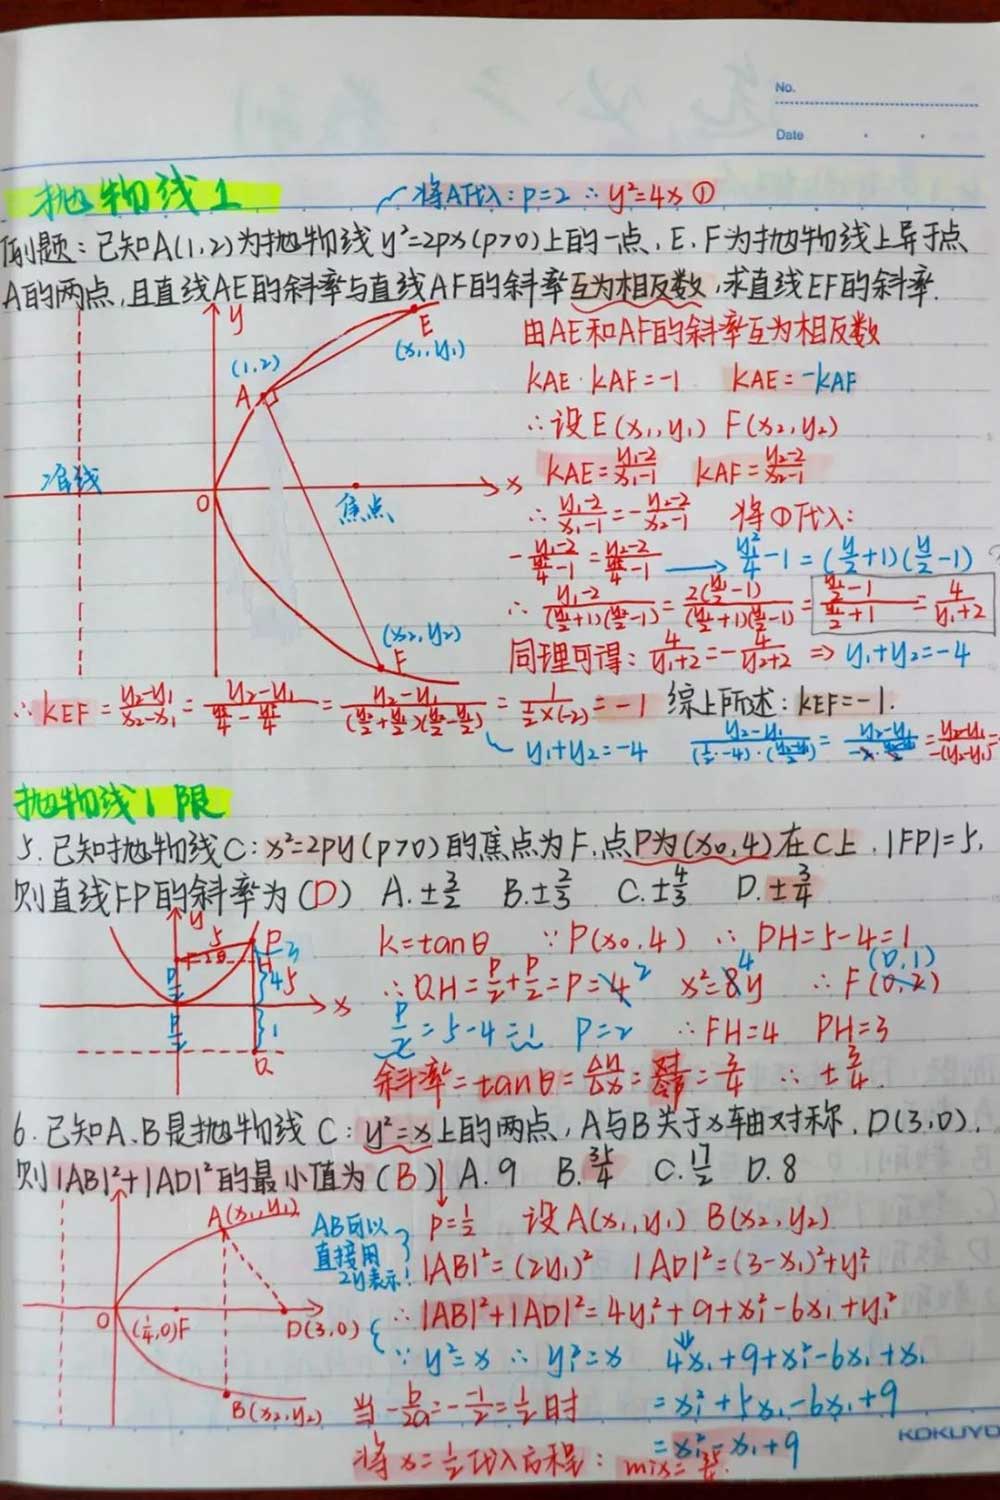 No.
Date
抛物线1
将A代入:p=2 ∴y²=4x ①
例题:已知A(1,2)为抛物线y²=2px(p>0)上的一点,E、F为抛物线上异于点
A的两点,且直线AE的斜率与直线AF的斜率互为相反数,求直线EF的斜率.
y
E
(x₁,y₁)
(1,2)
A
准线
O
焦点
x
(x₂,y₂)
F
由AE和AF的斜率互为相反数
kAE·kAF=-1 kAE=-kAF
∴设E(x₁,y₁) F(x₂,y₂)
kAE=(y₁-2)/(x₁-1) kAF=(y₂-2)/(x₂-1)
∴(y₁-2)/(x₁-1)=-(y₂-2)/(x₂-1) 将①代入:
y₁²/4-1=(y/2+1)(y/2-1)
=4/(y₁+2)
同理可得:4/(y₁+2)=-4/(y₂+2) ⇒ y₁+y₂=-4
∴kEF=(y₂-y₁)/(x₂-x₁)= =1/(½×(-2))=-1 综上所述:kEF=-1.
y₁+y₂=-4
抛物线1限
5.已知抛物线C:x²=2py(p>0)的焦点为F,点P为(x₀,4)在C上,|FP|=5,
则直线FP的斜率为(D) A.±3/2 B.±2/3 C.±4/3 D.±3/4
k=tanθ ∵P(x₀,4) ∴PH=5-4=1
∴QH=p/2+p/2=p=4 2 x²=8y 4 ∴F(0,2) (0,1)
p/2=5-4=1 p=2 ∴FH=4 PH=3
斜率=tanθ=Δy/Δx= =3/4 ∴±3/4.
6.已知A、B是抛物线C:y²=x上的两点,A与B关于x轴对称,D(3,0),
则|AB|²+|AD|²的最小值为(B) A.9 B.35/4 C.17/2 D.8
A(x₁,y₁)
O
(¼,0)F
D(3,0)
B(x₂,y₂)
AB可以
直接用
2y表示!
p=½ 设A(x₁,y₁) B(x₂,y₂)
|AB|²=(2y₁)² |AD|²=(3-x₁)²+y₁²
∴|AB|²+|AD|²=4y₁²+9+x₁²-6x₁+y₁²
∵y²=x ∴y₁²=x 4x₁+9+x₁²-6x₁+x₁
当-b/2a=-(-1)/2=½时 =x₁²+5x₁-6x₁+9
=x₁²-x₁+9
将x=½代入方程:
KOKUYO